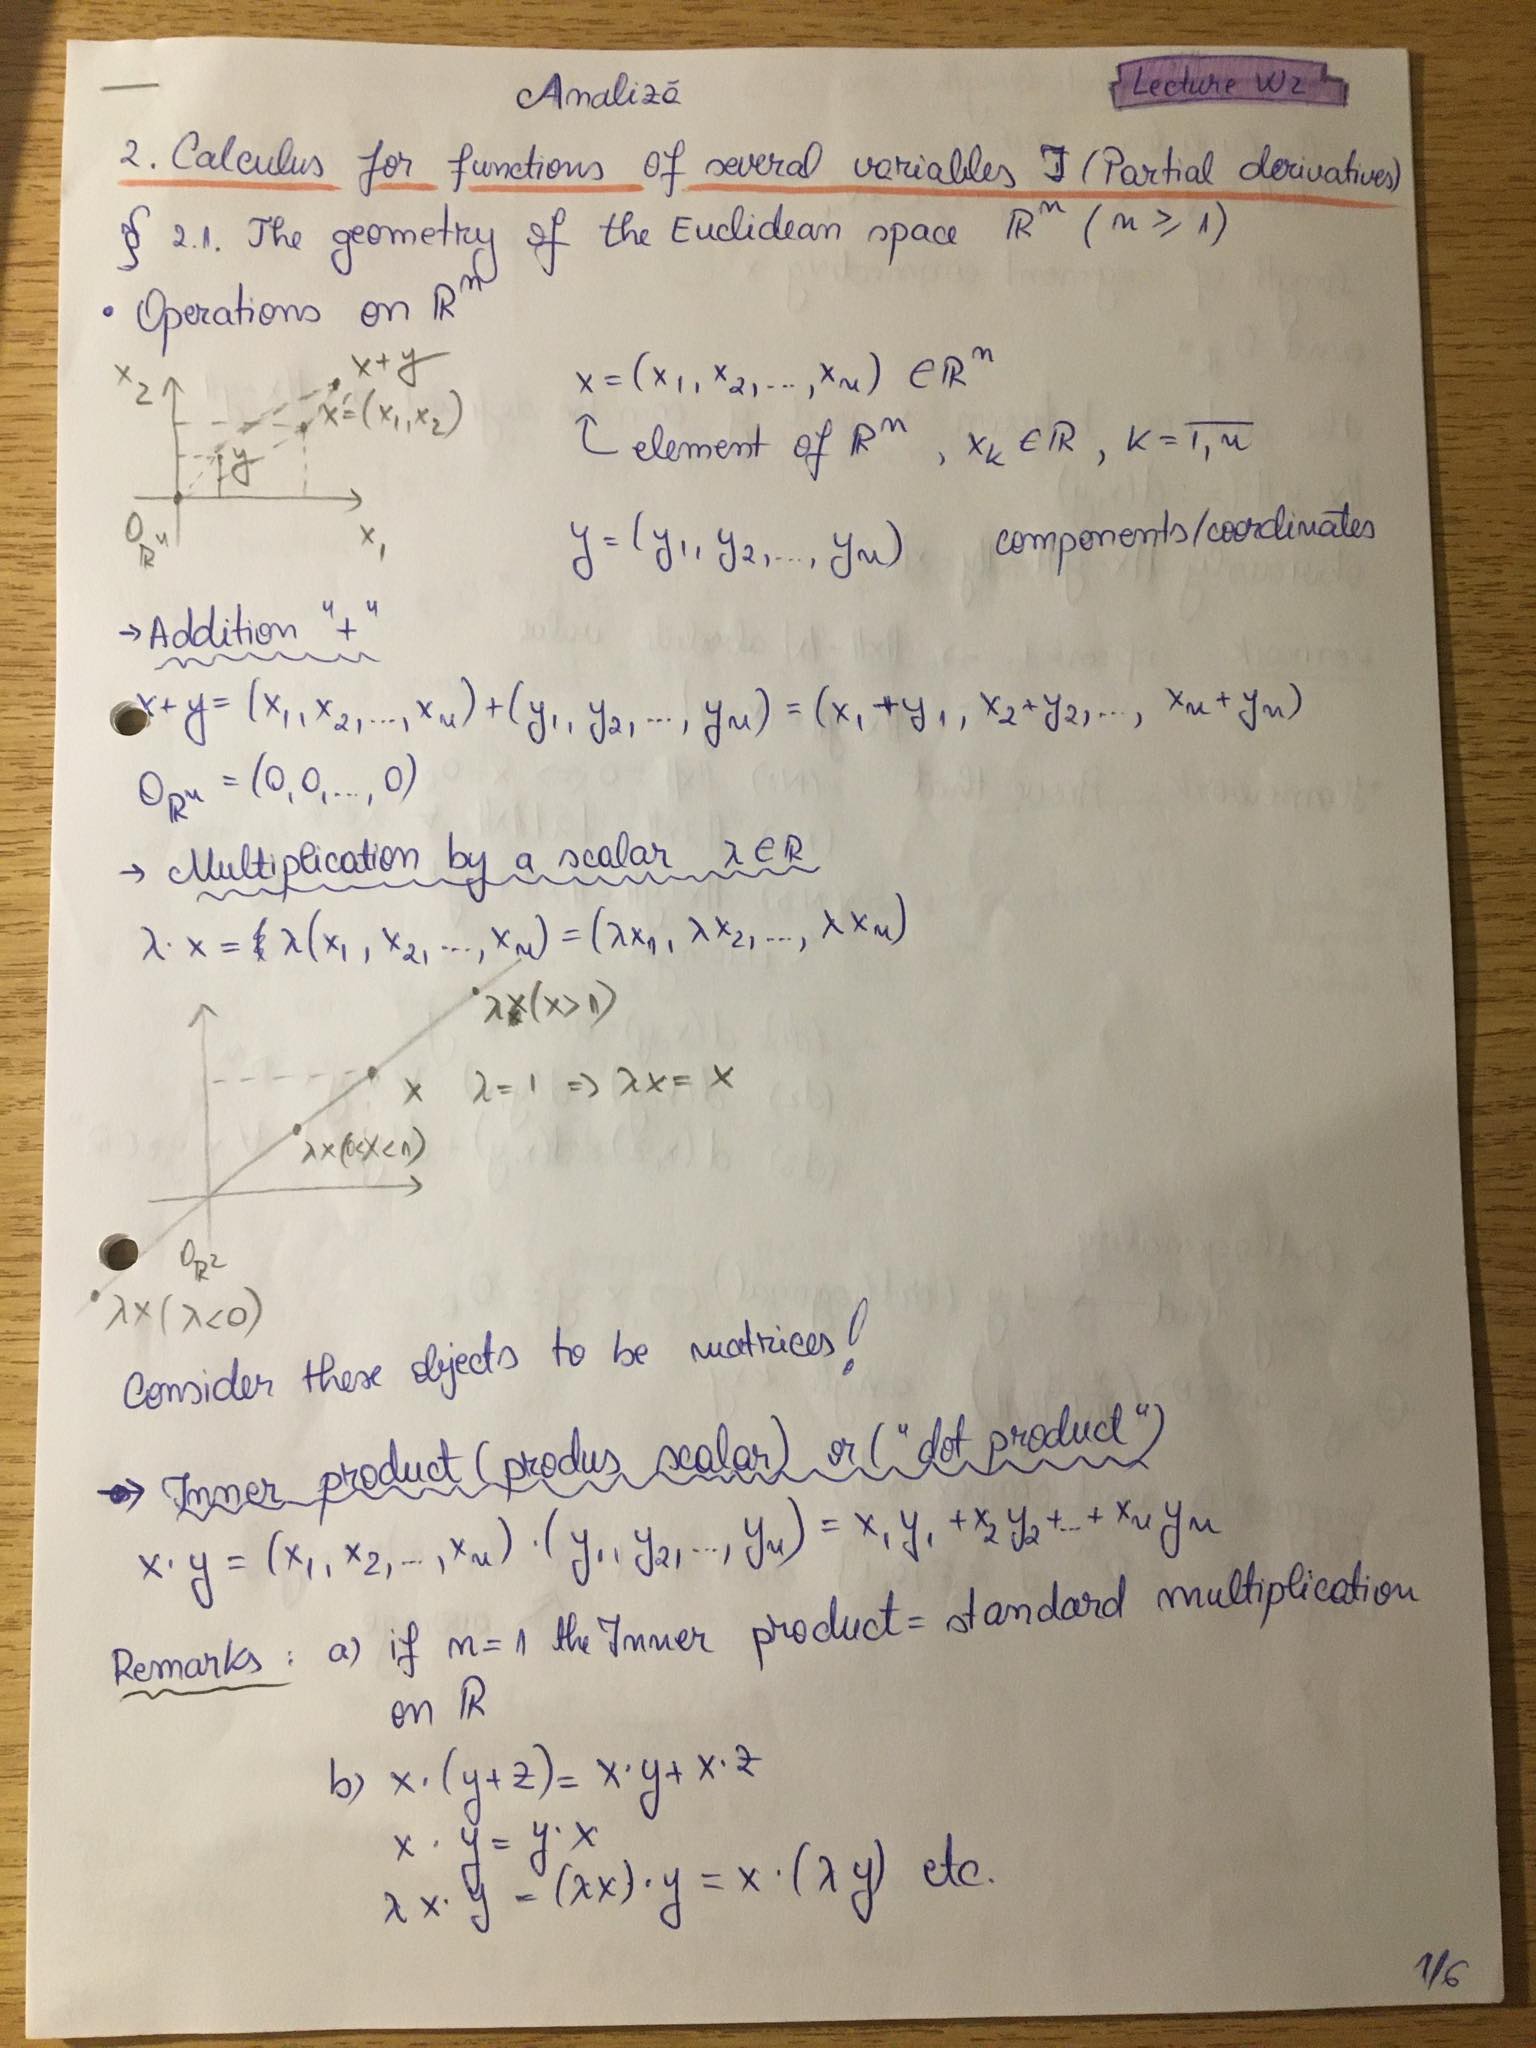 Analiză
Lecture W2
2. Calculus for functions of several variables I (Partial derivatives)
§ 2.1. The geometry of the Euclidean space ℝⁿ (n ≥ 1)
• Operations on ℝⁿ
x₂
x+y
x=(x₁,x₂)
y
0_ℝⁿ
x₁
x=(x₁, x₂,..., xₙ) ∈ ℝⁿ
element of ℝⁿ, xₖ ∈ ℝ, k = 1,n
y=(y₁, y₂,..., yₙ) components/coordinates
→ Addition "+"
x+y=(x₁,x₂,...,xₙ)+(y₁, y₂,..., yₙ)=(x₁+y₁, x₂+y₂,..., xₙ+yₙ)
0_ℝⁿ = (0,0,...,0)
→ Multiplication by a scalar λ∈ℝ
λ·x = λ(x₁, x₂,..., xₙ)=(λx₁, λx₂,..., λxₙ)
λx(x>1)
x λ=1 => λx= x
λx(0<x<1)
0_ℝ²
λx(λ<0)
Consider these objects to be matrices!
→ Inner product (produs scalar) or ("dot product")
x·y = (x₁, x₂,..., xₙ)·(y₁, y₂,..., yₙ) = x₁y₁+x₂y₂+...+xₙyₙ
Remarks: a) if n=1 the Inner product= standard multiplication
on ℝ
b) x·(y+z)= x·y+x·z
x·y=y·x
λx·y=(λx)·y = x·(λy) etc.
1/6